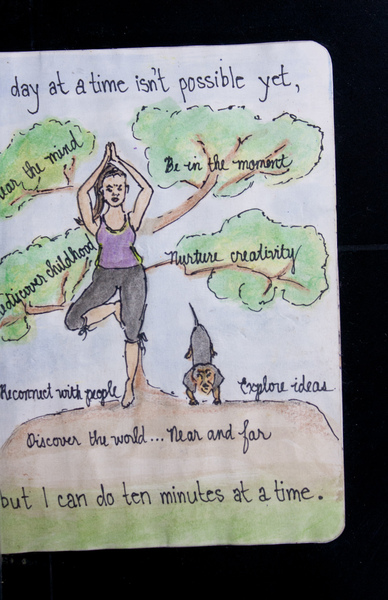 day at a time isn't possible yet,
the mind
Be in the moment
childhood
Nurture creativity
Reconnect with people
Explore ideas
Discover the world... Near and far
but I can do ten minutes at a time.